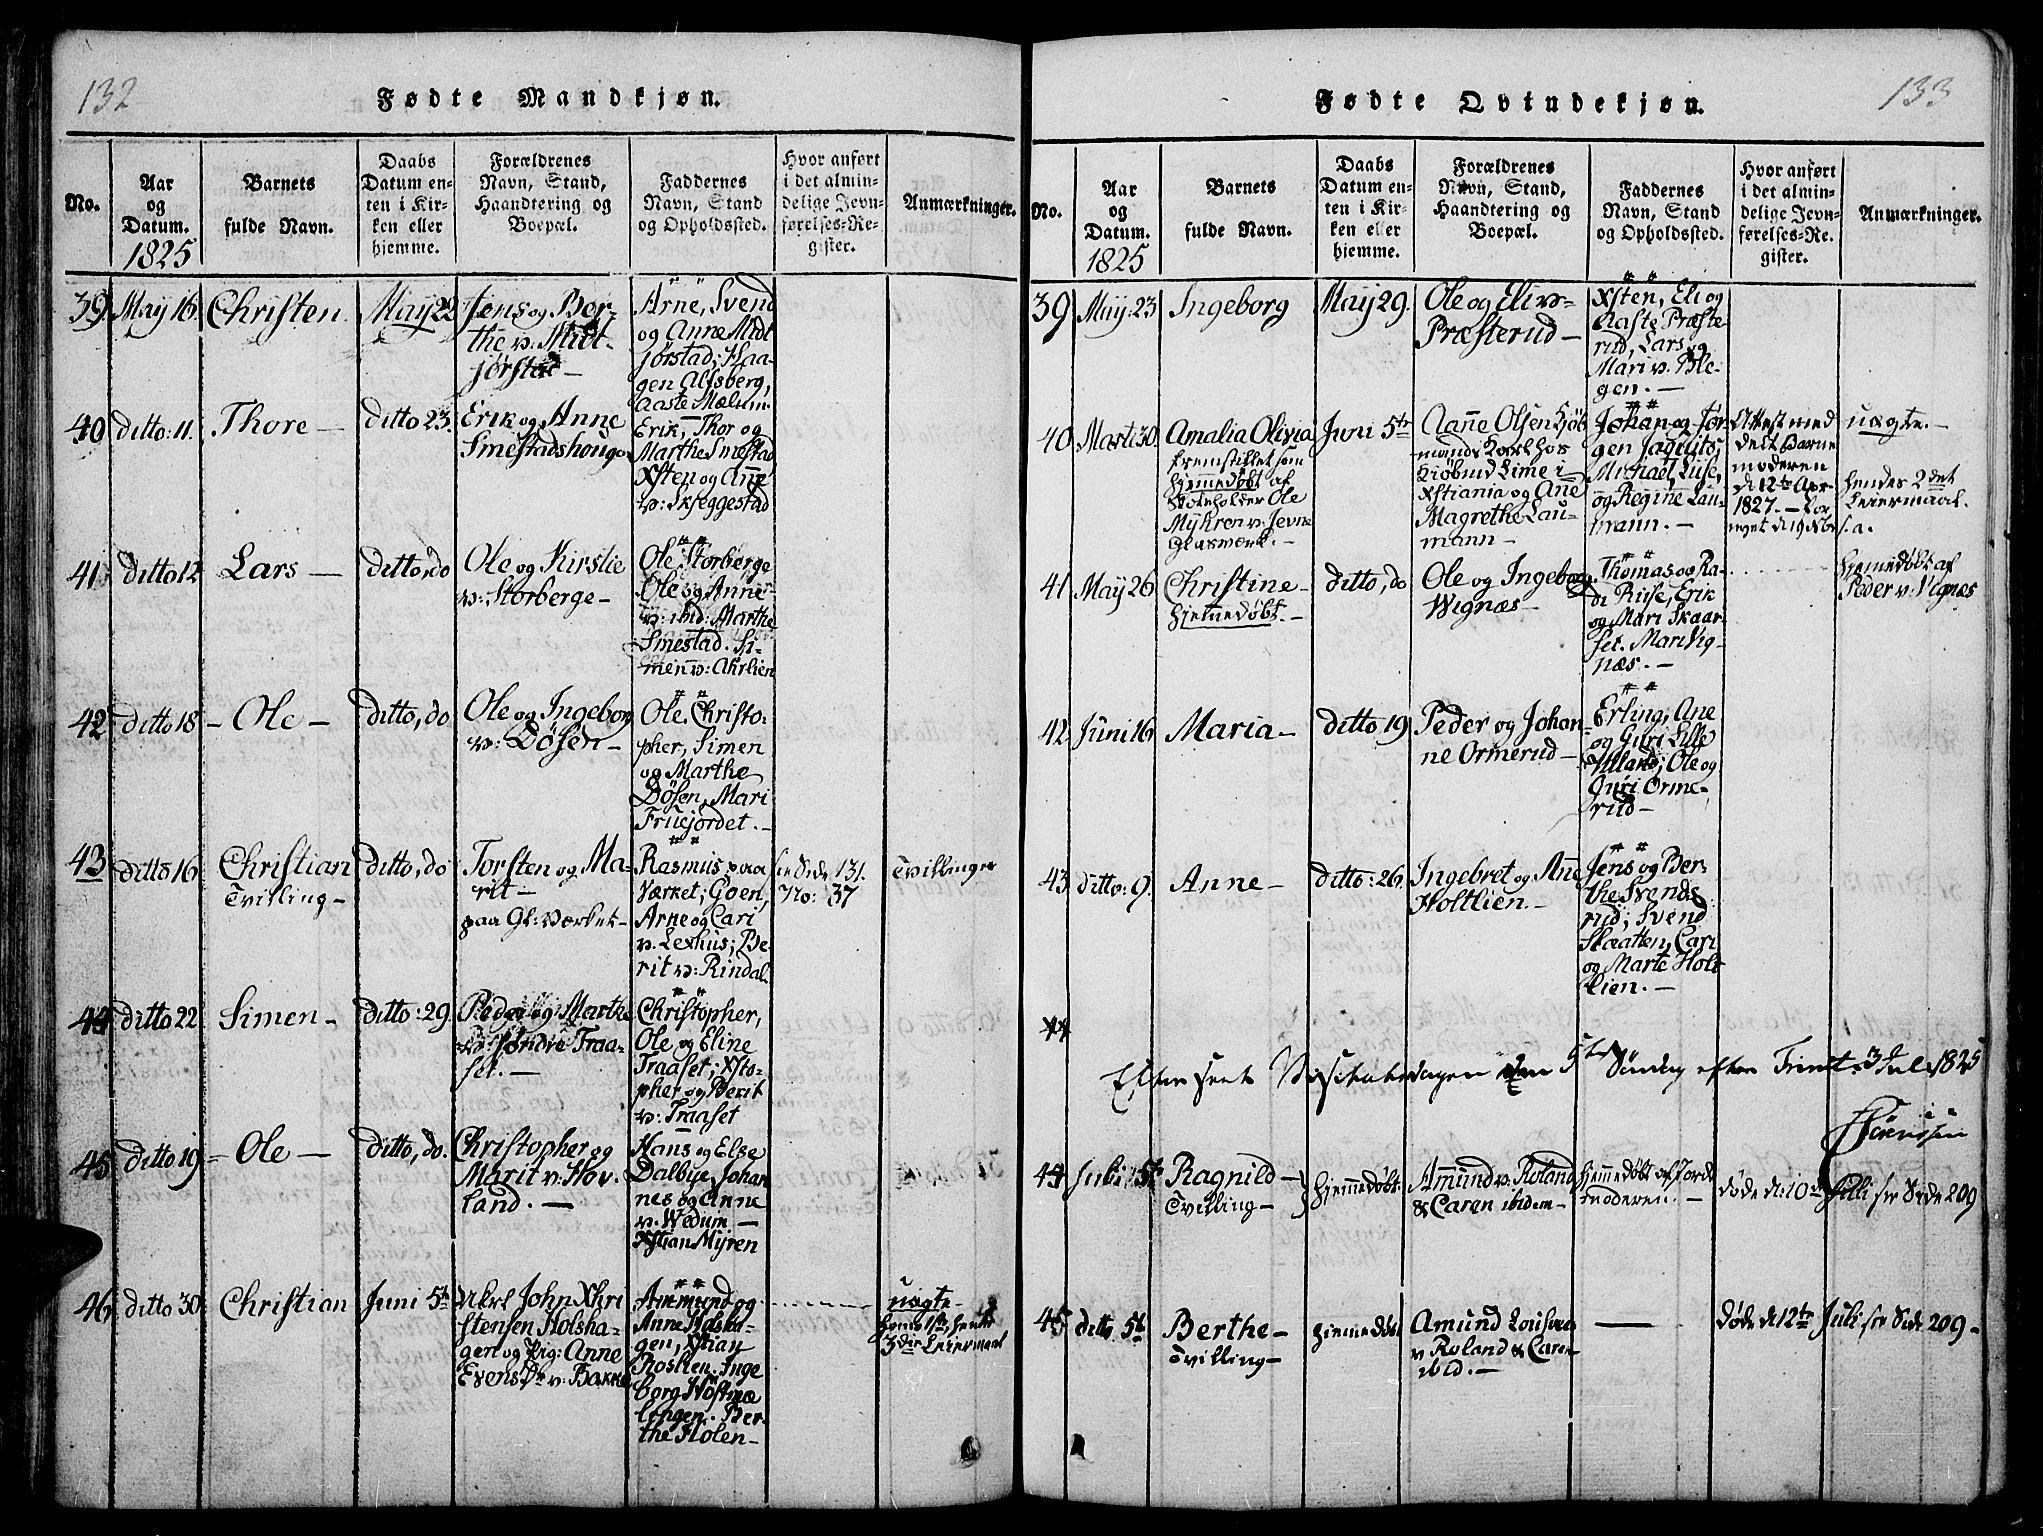 132
Fødte Mandkjøn.
No.
Aar
og
Datum.
1825
Barnets
fulde Navn.
Daabs
Datum en-
ten i Kir-
ken eller
hjemme.
Forældrenes
Navn, Stand,
Haandtering og
Boepæl.
Faddernes
Navn, Stand
og Opholdssted.
Hvor anført
i det almin-
delige Jevn-
førelses-Re-
gister.
Anmærkninger.
39
May 16
Christen
May 22
Jens og Ber-
the v: Midt-
jørstad—
Arne, Svend
og Anne Midt
jørstad; Haa-
gen Alfsberg,
Aaste Mælum.
40
ditto: 11.
Thore—
ditto 23.
Erik og Anne
Smestadshongen
Erik, Thor og
Marthe Smestad
Xsten og Anne
v: Skjeggestad
41
ditto 12
Lars—
ditto, do
Ole og Kirstie
v: Storberge—
Ole Storberge
Ole og Anne
v: ibid: Marthe
Smestad. Si-
men v: Ahrlien
42
ditto 18
– Ole –
ditto, do
Ole og Ingeborg
v: Døsen—
Ole, Christo-
pher, Simen
og Marthe
Døsen, Mari
Fruejordet.—
43
ditto 16
Christian
Tvilling—
ditto, do
Torsten og Ma-
rit—
paa Gl: Værket—
Rasmus paa
Værket; Goen,
Arne og Cari
v. Lexhus; Be-
rit v: Rindal
se Side 131.
No: 37
Tvillinger
44
ditto 22
Simen—
ditto: 29.
Peder og Marthe
v: Søndre Traa-
set.—
Christopher,
Ole og Eline
Traaset; Xsto-
pher og Berit
v: Traaset
45
ditto 19
– Ole –
ditto, do.
Christopher og
Marit v: Hov-
land.—
Hans og Else
Dalbye, Johan
nes og Anne
v. Wedum—
Xstian Myren
46
ditto 30
Christian
Juni 5te
John Xhri
stensen Holsha-
gen og Pig: Anne
Evensdr v: Bakke
Ammund og
Anne Holsha-
gen,
Roslien, Inge
borg
lengen. Ber-
the Holen—
uægte—
hans 1ste, hendes
3die Leiermaal
133
Fødte Qvindekjøn.
No.
Aar
og
Datum.
1825
Barnets
fulde Navn.
Daabs
Datum en-
ten i Kir-
ken eller
hjemme.
Forældrenes
Navn, Stand,
Haandtering og
Boepæl.
Faddernes
Navn, Stand
og Opholdssted.
Hvor anført
i det almin-
delige Jevn-
førelses-Re-
gister.
Anmærkninger.
39
May: 23
Ingeborg
May 29.
Ole og Eli v:
Præsterud—
Xsten, Eli og
Aaste Præste-
rud, Lars og
Mari v. Ble-
gen.—
40
Marti 30.
Amalia Olivia
fremstillet som
hjemmedøbt af
Skoleholder Ole
Myhren v: Jevne
Glasværk.—
Juni 5te
Anne Olsen Kjøb
mands Karl hos
Kiøbmd Lime i
Xstiania og Ane
Magrethe Lau-
mann—
Johan og Jør
gen
Michael, Luse,
og Regine Lau-
mann.—
Attest med
delt Barne
moderen
d 12te Apr.
1827.—
uægte.—
hendes 2det
Leiermaal.
41
May 26
Christine—
hjemmedøbt.—
ditto, do
Ole og Ingeborg
Wignæs—
Thomas og Ra-
di Ruse, Erik
og Mari Skaar-
set. Mari Vig-
næs.—
hjemmedøbt af
Peder v: Vignæs
42
Juni 16
Maria—
ditto 19
Peder og Johan-
ne Ormerud—
Erling, Ane
og Guri Lille
Ulland; Ole og
Guri Orme-
rud—
43
ditto: 9.
Anne—
ditto: 26.
Ingebret og Ane
Holtlien.—
Jens og Ber-
the Svends
rud; Svend
Skaatten, Cari
og Marte Holt
lien.—
44
Efterseet Visitatsdagen den 5te Søndag efter Trinit: 3 Juli 1825
44
Juli 5te
Ragnild—
Tvilling—
hjemmedøbt
Amund v. Roland
& Caren ibidem—
hjemmedøbt af Jorde
moderen.—
døde d: 10de Juli see Side 209
45
ditto 5te
Berthe—
Tvilling—
hjemmedøbt
Amund
v Roland & Caren
ibid.—
døde d: 12te Juli see Side 209—